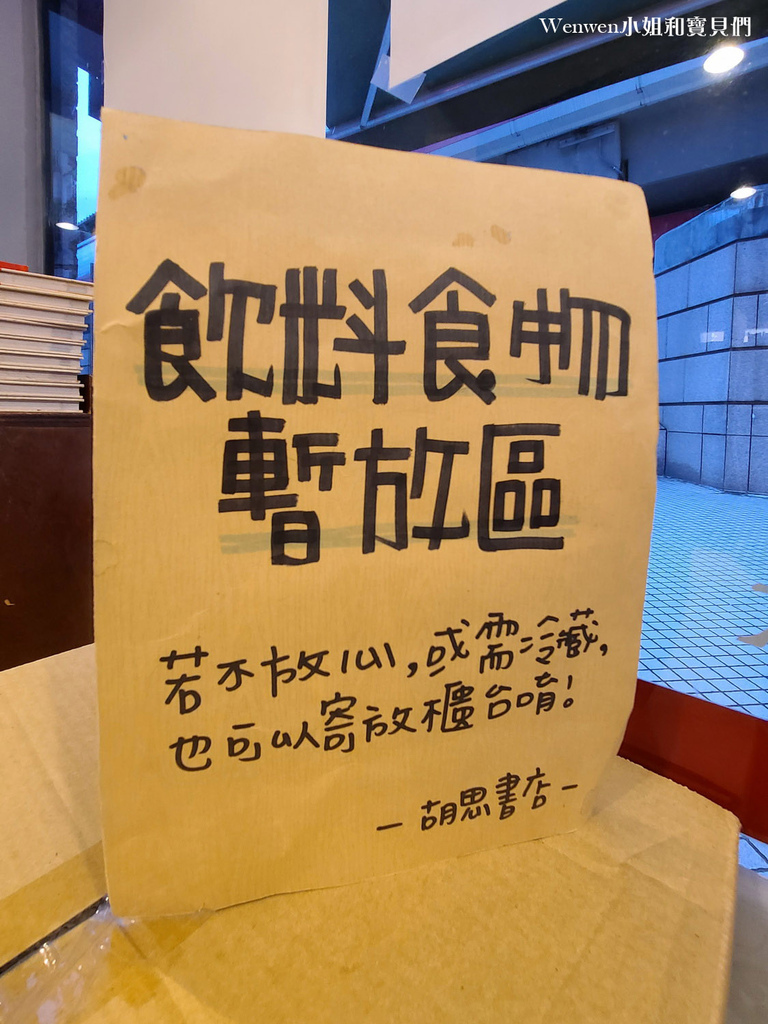 Wenwen小姐和寶貝們
飲料食物
暫放區
若不放心,或需冷藏,
也可以寄放櫃台唷!
－胡思書店－